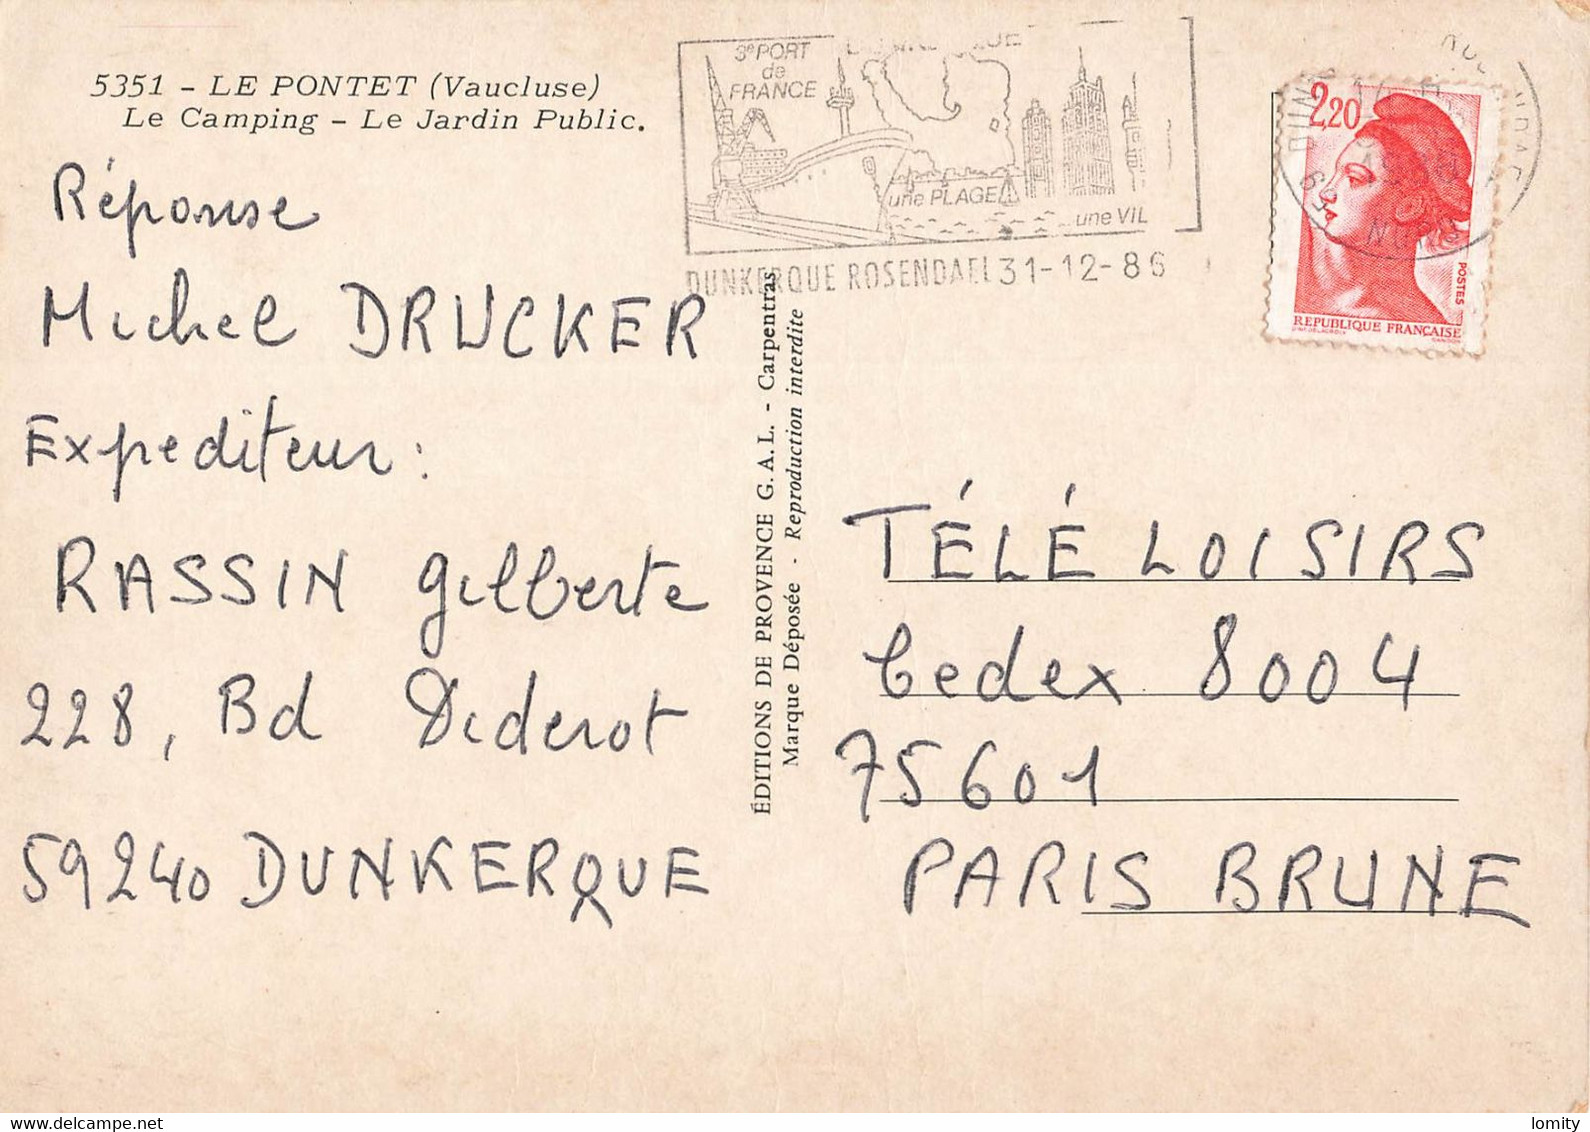 5351 - LE PONTET (Vaucluse)
Le Camping - Le Jardin Public.
Réponse
Michel DRUCKER
Expediteur :
RASSIN Gilberte
228, Bd Diderot
59240 DUNKERQUE
ÉDITIONS DE PROVENCE G. A. L. - Carpentras
Marque Déposée - Reproduction interdite
3e PORT
de
FRANCE
une PLAGE
...une VIL
DUNKERQUE ROSENDAEL 31-12-86
2,20
POSTES
REPUBLIQUE FRANÇAISE
59 NORD
TÉLÉ LOISIRS
Cedex 8004
75601
PARIS BRUNE
lomity